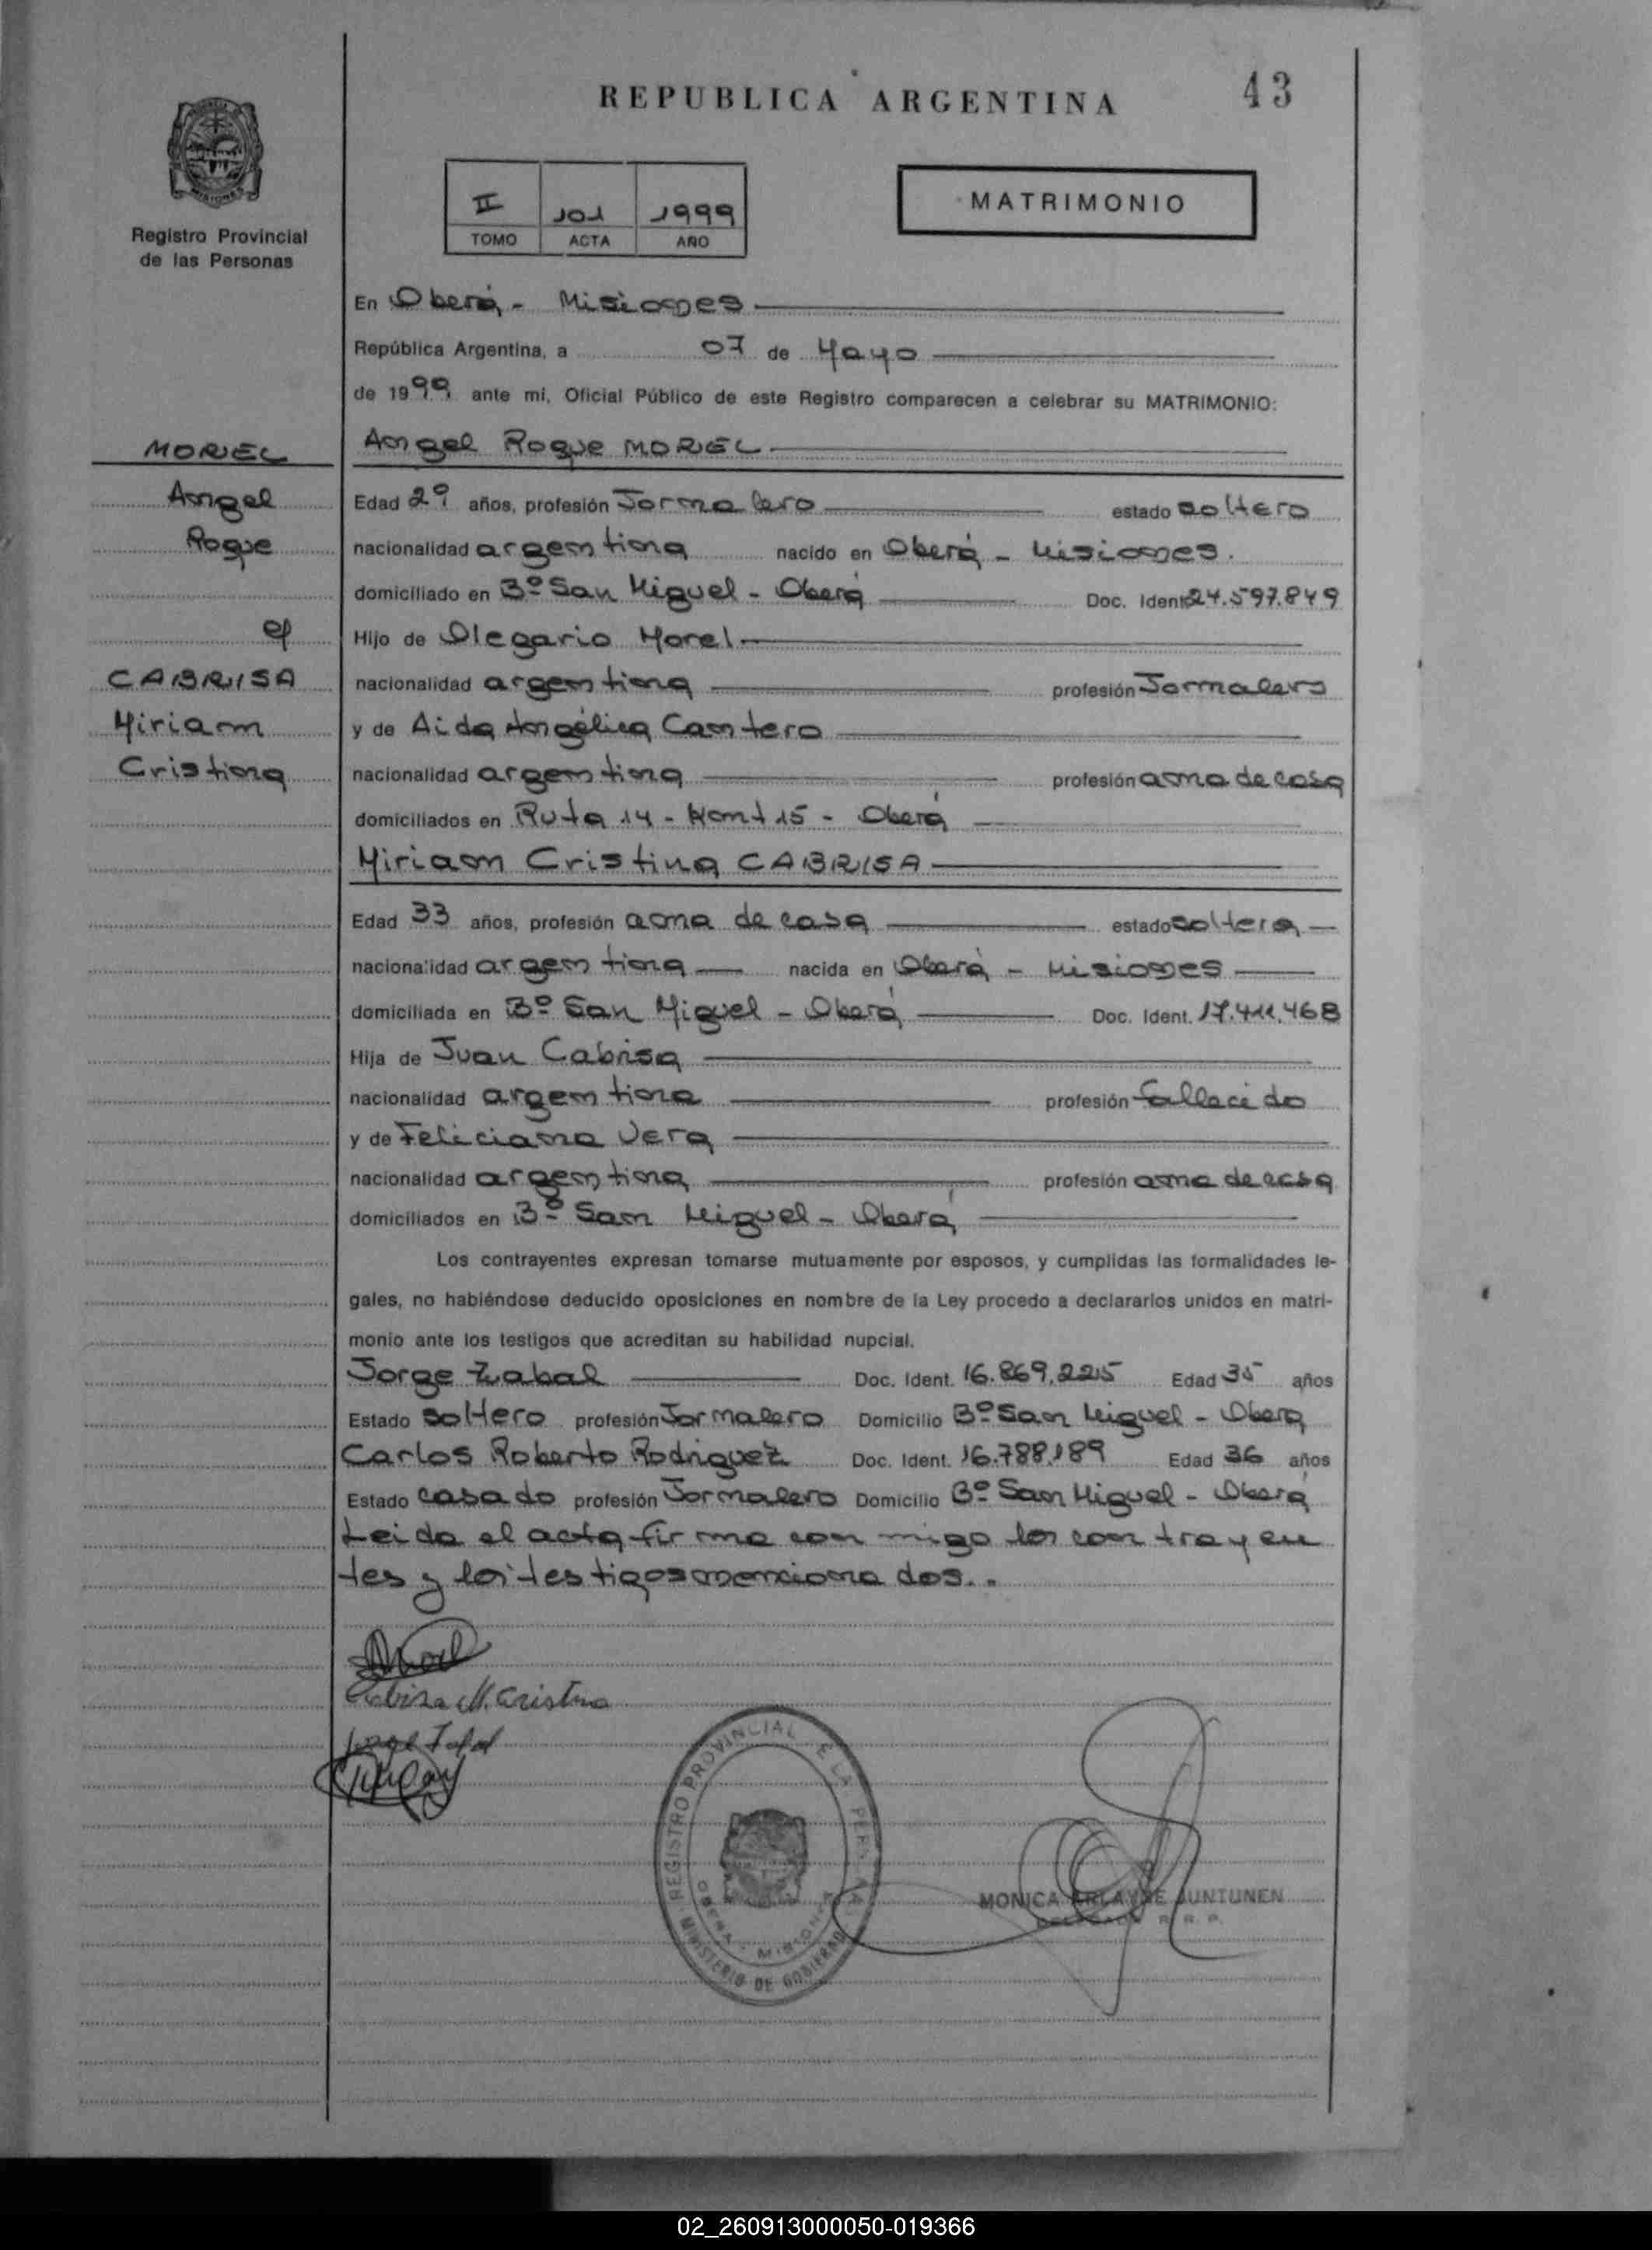 REPUBLICA ARGENTINA
43
MISIONES
Registro Provincial
de las Personas
II 101 1999
TOMO ACTA AÑO
MATRIMONIO
En Oberá - Misiones
República Argentina, a 07 de Mayo
de 1999 ante mí, Oficial Público de este Registro comparecen a celebrar su MATRIMONIO:
MOREL
Angel
Roque
c/
CABRISA
Miriam
Cristina
Angel Roque MOREL
Edad 29 años, profesión Jornalero estado soltero
nacionalidad argentina nacido en Oberá - Misiones.
domiciliado en Bº San Miguel - Oberá Doc. Ident. 24.597.849
Hijo de Olegario Morel
nacionalidad argentina profesión Jornalero
y de Aida Angélica Cantero
nacionalidad argentina profesión ama de casa
domiciliados en Ruta 14 - Km 15 - Oberá
Miriam Cristina CABRISA
Edad 33 años, profesión ama de casa estado soltera
nacionalidad argentina nacida en Oberá - Misiones
domiciliada en Bº San Miguel - Oberá Doc. Ident. 17.411.468
Hija de Juan Cabrisa
nacionalidad argentina profesión fallecido
y de Feliciana Vera
nacionalidad argentina profesión ama de casa
domiciliados en Bº San Miguel - Oberá
Los contrayentes expresan tomarse mutuamente por esposos, y cumplidas las formalidades le-
gales, no habiéndose deducido oposiciones en nombre de la Ley procedo a declararlos unidos en matri-
monio ante los testigos que acreditan su habilidad nupcial.
Jorge Zabal Doc. Ident. 16.869.225 Edad 35 años
Estado soltero profesión Jornalero Domicilio Bº San Miguel - Oberá
Carlos Roberto Rodriguez Doc. Ident. 16.788.189 Edad 36 años
Estado casado profesión Jornalero Domicilio Bº San Miguel - Oberá
Leida el acta firma con migo los contrayen
tes y los testigos mencionados..
Cabrisa M. Cristina
REGISTRO PROVINCIAL DE LAS PERSONAS
OBERA - MISIONES
MINISTERIO DE GOBIERNO
MONICA ARLAYNE JUNTUNEN
02_260913000050-019366